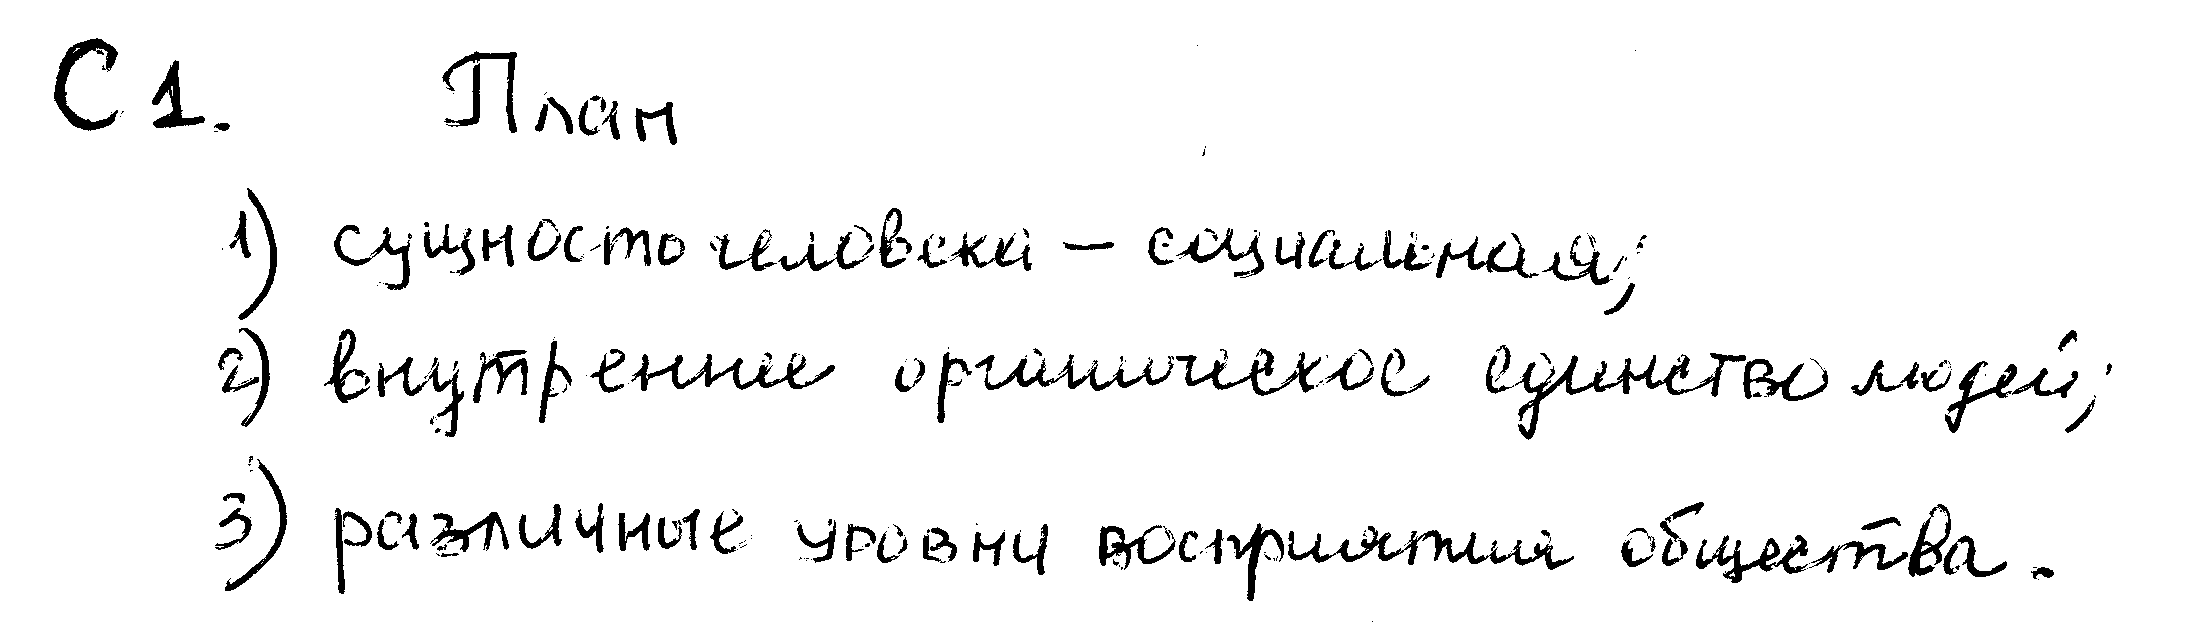 С1. План
1) сущность человека – социальная;
2) внутреннее органическое единство людей;
3) различные уровни восприятия общества.